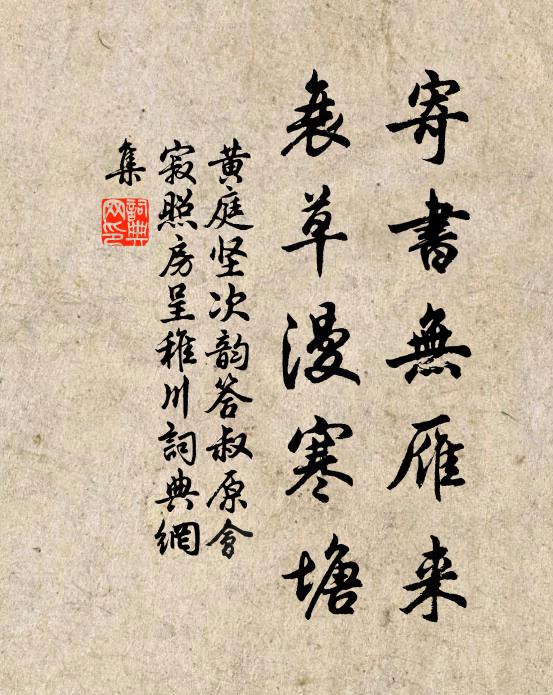 寄書無雁来
衰草漫寒塘
黄庭坚次韵答叔原會
寂照房呈稚川詞典網
集
詞典网印